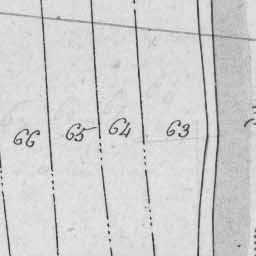 66 65 64 63